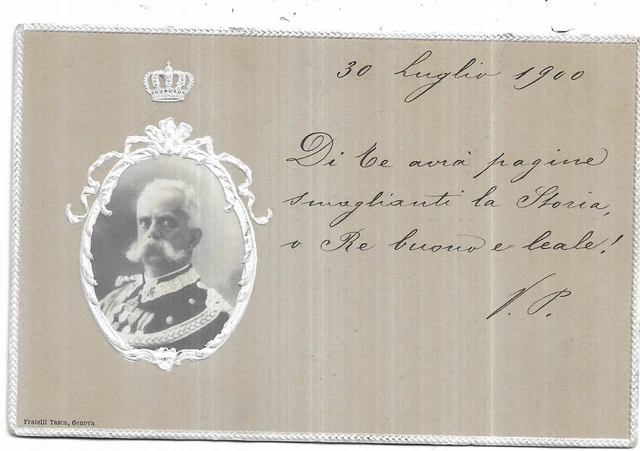 30 Luglio 1900
Di Te avrà pagine
smaglianti la Storia,
o Re buono e leale!
V. P.
Fratelli Tasca, Genova